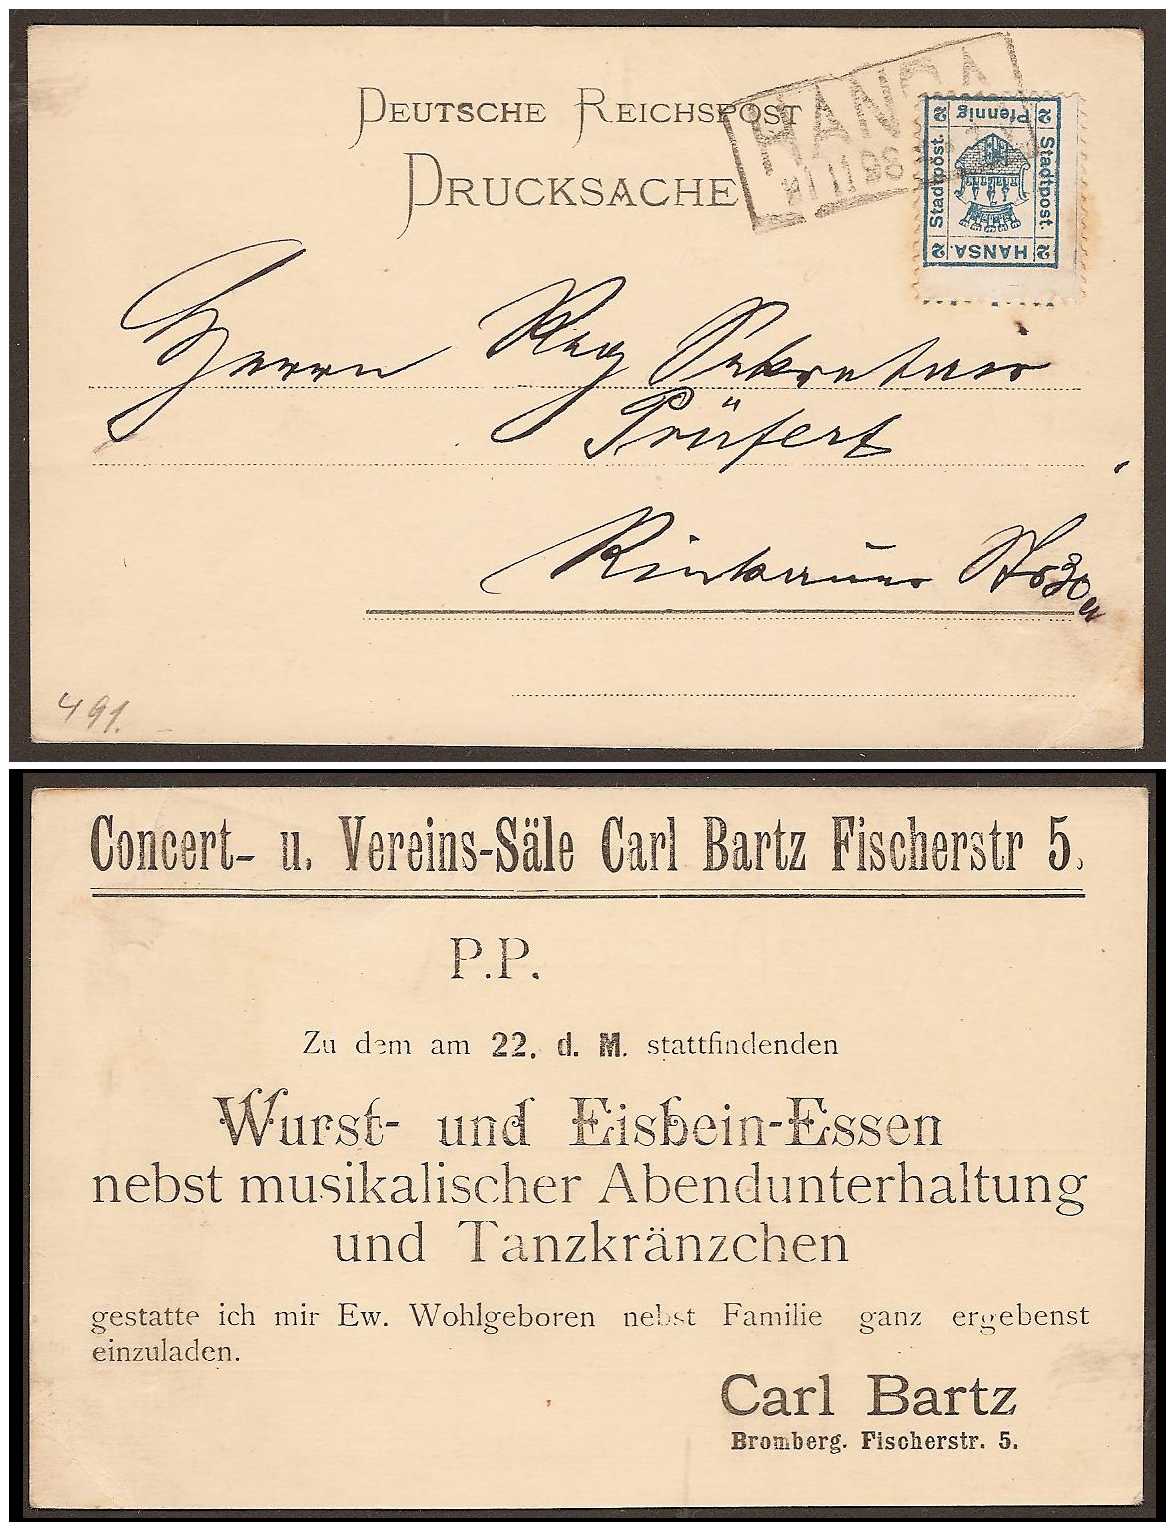 DEUTSCHE REICHSPOST
DRUCKSACHE
HANSA
11 98
2 Pfennig 2
Stadtpost.
Stadtpost.
2 HANSA. 2
Herrn Reg Sekretair
Prüfert
Rinkauer Str 30
491.
Concert- u. Vereins-Säle Carl Bartz Fischerstr 5.
P.P.
Zu dem am 22. d. M. stattfindenden
Wurst- und Eisbein-Essen
nebst musikalischer Abendunterhaltung
und Tanzkränzchen
gestatte ich mir Ew. Wohlgeboren nebst Familie ganz ergebenst
einzuladen.
Carl Bartz
Bromberg. Fischerstr. 5.